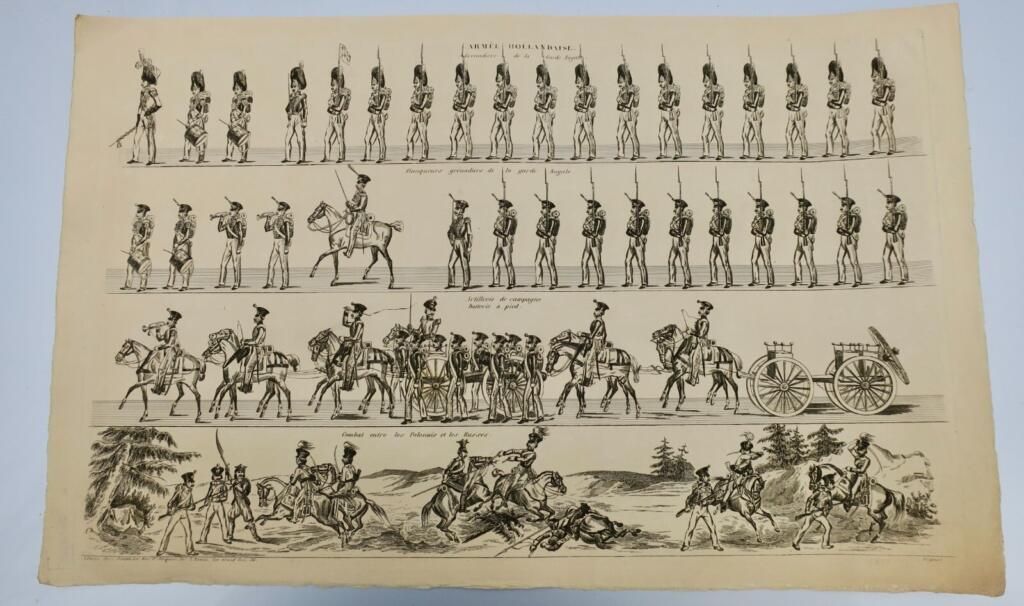 ARMÉE HOLLANDAISE.
Grenadiers de la Garde Royale
Flanqueurs grenadiers de la garde Royale
Artillerie de campagne
Batterie à pied.
Combat entre les Polonais et les Russes.